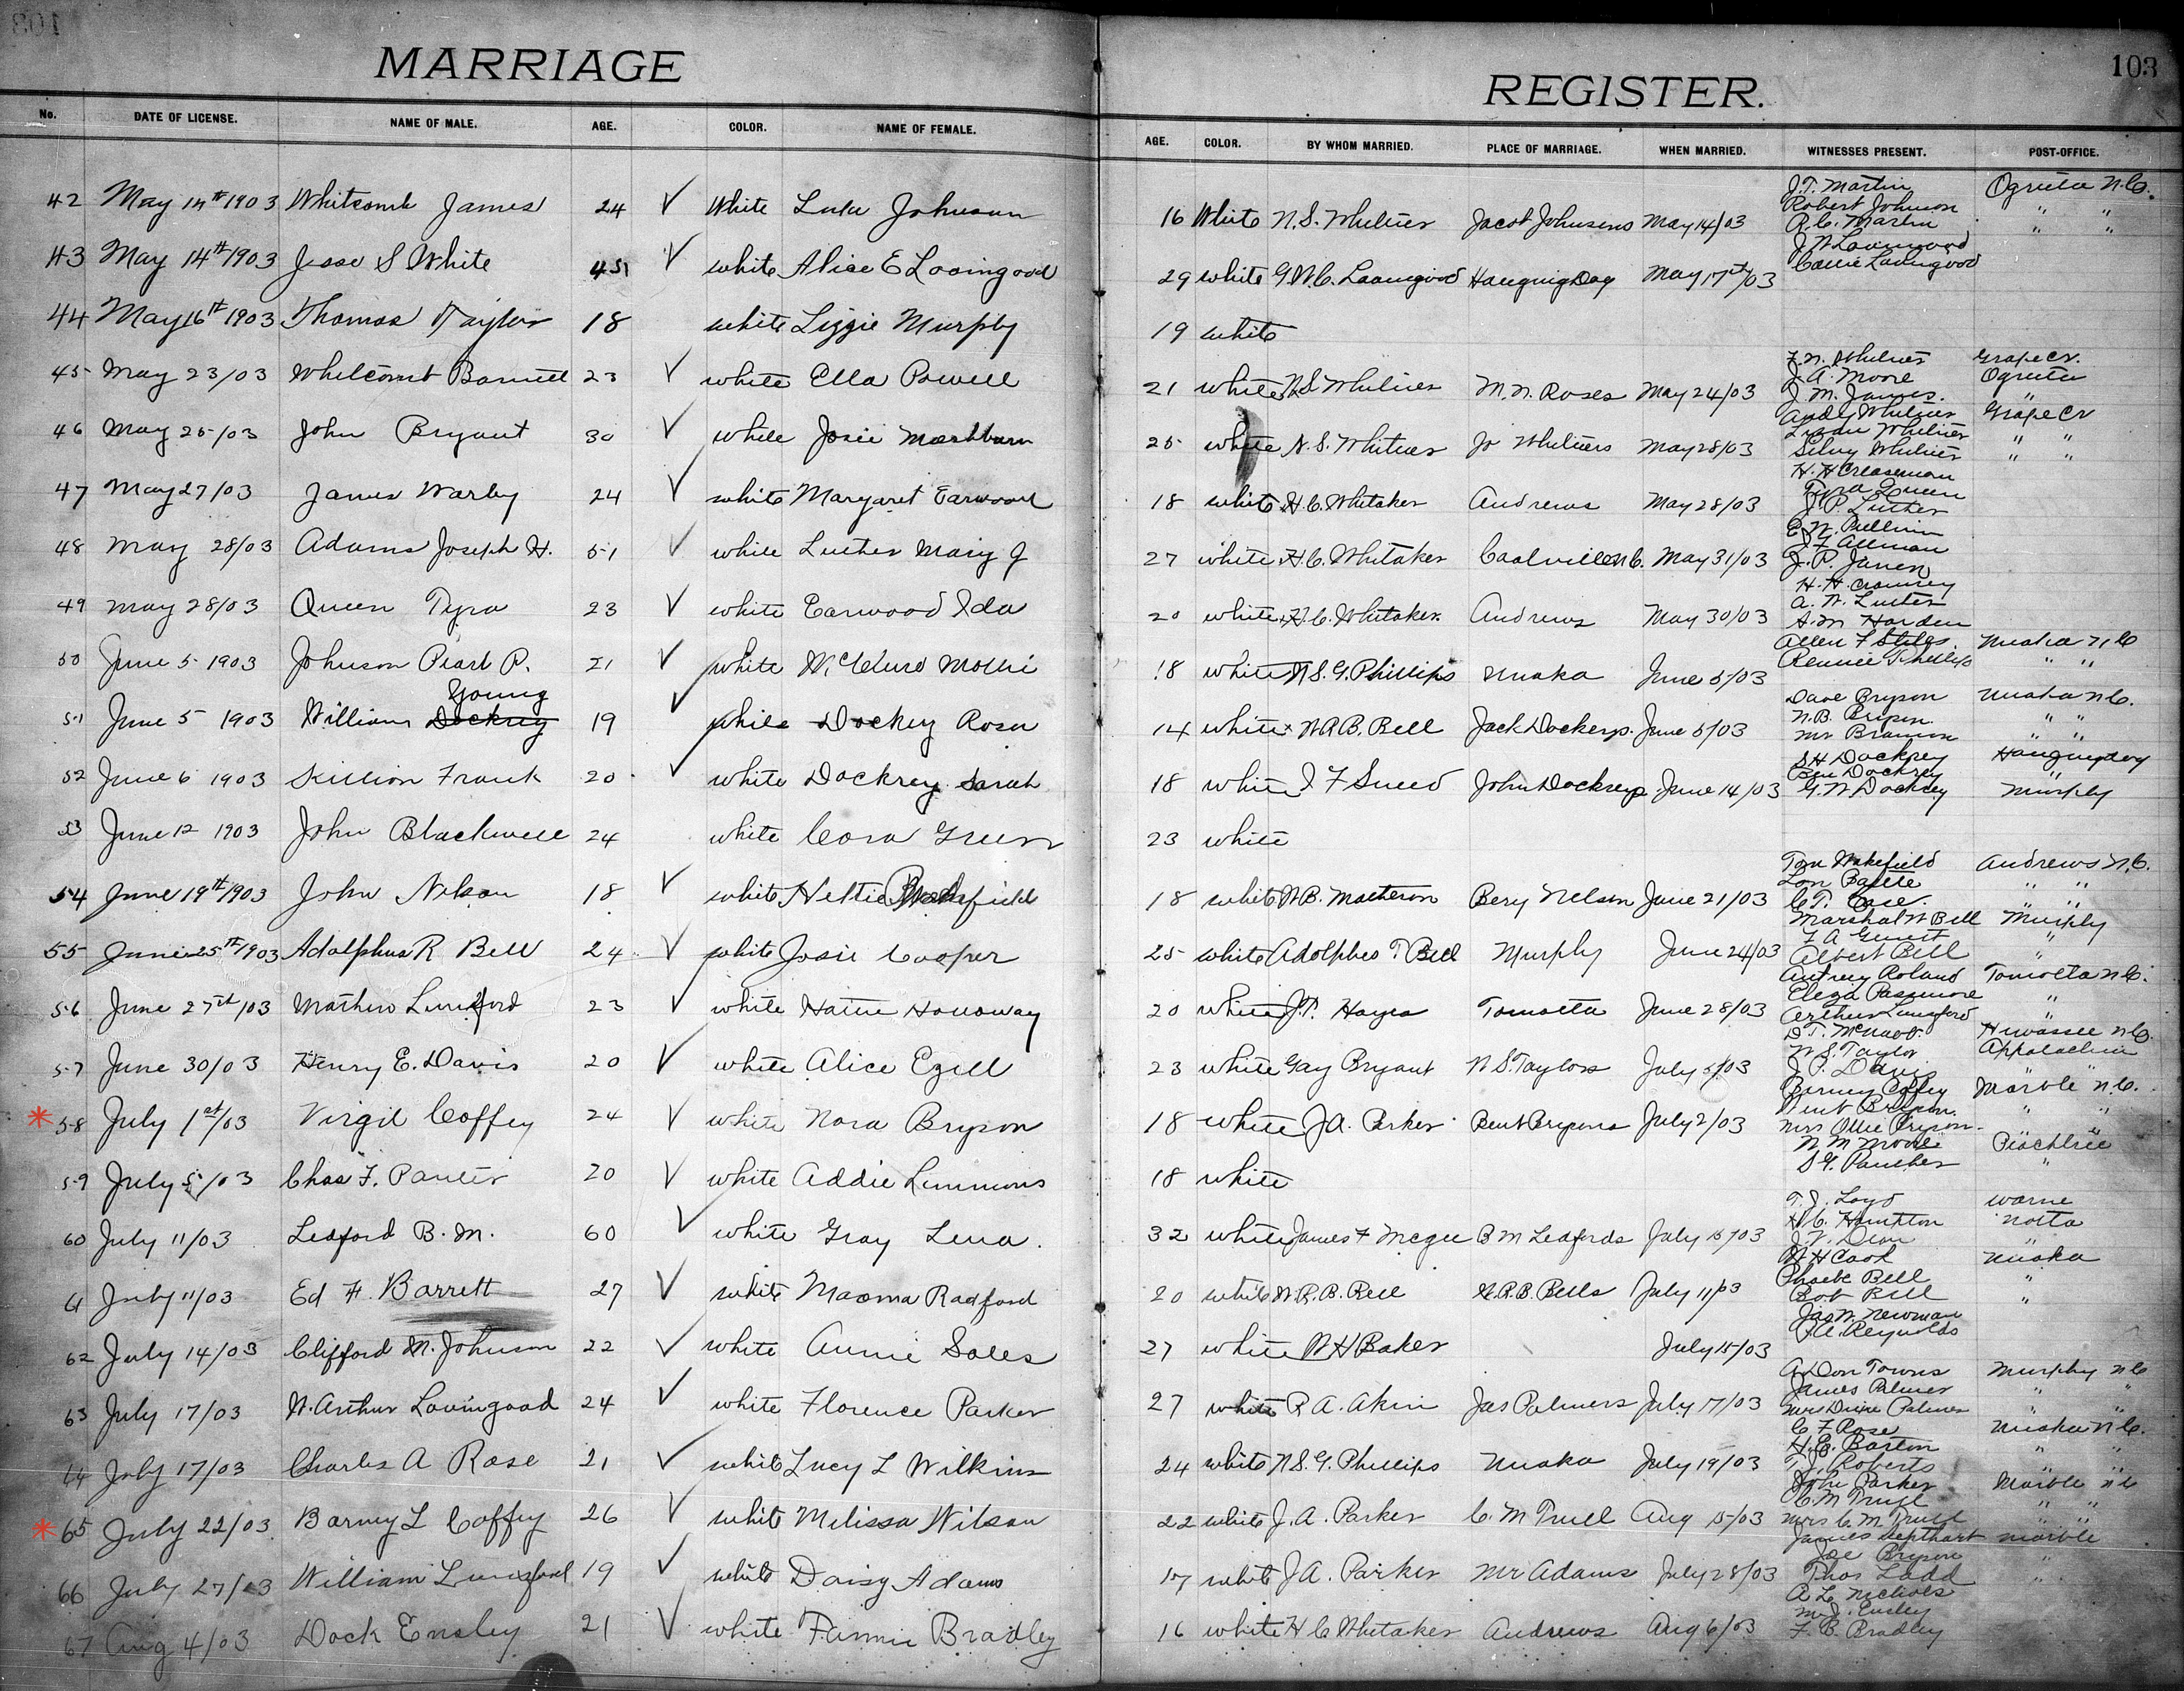 103
MARRIAGE REGISTER.
No. DATE OF LICENSE. NAME OF MALE. AGE. COLOR. NAME OF FEMALE. AGE. COLOR. BY WHOM MARRIED. PLACE OF MARRIAGE. WHEN MARRIED. WITNESSES PRESENT. POST-OFFICE.
42 May 14th 1903 Whitcomb James 24 ✓ White Lula Johnson 16 White N.S. Whitner Jacob Johnsons May 14/03 J.T. Martin Ogreeta N.C.
Robert Johnson " "
R.C. Martin " "
43 May 14th 1903 Jesse S White 45 ✓ white Alice E Lovingood 29 white G.W.C. Lovingood Hanging Dog May 17th/03 J W Lovingood
Callie Lovingood
44 May 16th 1903 Thomas Taylor 18 white Lizzie Murphy 19 white
45 May 23/03 Whitcomb Barnett 23 ✓ white Ella Powell 21 white N.S. Whitner M.N. Roses May 24/03 Whitner Grape Cr.
J.A. Moore Ogreeta
J.M. James "
46 May 25/03 John Bryant 30 ✓ white Josie Mashburn 25 white N.S. Whitner Jo Whitners May 28/03 Andy Whitner Grape Cr
Whitner " "
Silvy Whitner " "
47 May 27/03 James Warly 24 ✓ white Margaret Earwood 18 white H.C. Whitaker Andrews May 28/03 H.H. Creaseman
Tyra Queen
J.P. Luther
48 May 28/03 Adams Joseph H. 51 ✓ white Luther Mary J 27 white H.C. Whitaker Coalville N.C. May 31/03 E.W. Pullium
Allman
J.P.
49 May 28/03 Queen Tyra 23 ✓ white Earwood Ida 20 white H.C. Whitaker Andrews May 30/03 H.H.
A.W. Luther
A.M. Harden
50 June 5 1903 Johnson Pearl P. 21 ✓ white McClure Mollie 18 white N.S.G. Phillips Unaka June 5/03 Allen F Stiles Unaka N.C.
Phillips " "
Young
51 June 5 1903 William Dockrey 19 ✓ white Dockey Rosa 14 white W.A.B. Bell Jack Dockerys. June 5/03 Dave Bryson Unaka N.C.
N.B. Bryson " "
Mr " "
52 June 6 1903 Killion Frank 20 ✓ white Dockrey Sarah 18 white J F Sneed John Dockreys June 14/03 S H Dockrey Hangingdog
Ben Dockrey "
G.W Dockrey Murphy
53 June 12 1903 John Blackwell 24 white Cora Green 23 white
54 June 19th/1903 John Nelson 18 ✓ white Hettie 18 white W.B. Matheson Bery Nelson June 21/03 Tom Wakefield Andrews N.C.
Lon Battle " "
C.T. " "
55 June 25th/1903 Adolphus R Bell 24 ✓ white Josie Cooper 25 white Adolphes T. Bell Murphy June 24/03 Marshal W Bell Murphy
"
Albert Bell "
56 June 27th/03 Mathew Lunsford 23 ✓ white Hattie Holloway 20 white J.T. Hayes Tomotla June 28/03 Autrey Roland Tomotla N.C.
Eliza Passmore "
Arthur Lunsford "
57 June 30/03 Henry E. Davis 20 ✓ white Alice Ezell 23 white Gay Bryant W S. Taylors July 5/03 D.T. McNabb Hiwassee N.C.
W.S. Taylor Appalachia
J.P. Davis "
* 58 July 1st/03 Virgil Coffey 24 ✓ white Nora Bryson 18 white J.A. Parker Bent Brysons July 2/03 Barney Coffey Marble N.C.
Bent Bryson " "
Mrs Ollie Bryson
59 July 5/03 Chas F. Panter 20 ✓ white Addie Lemmons 18 white W M Moore Peachtree
"
60 July 11/03 Ledford B.M. 60 ✓ white Gray Lena. 32 white James F McGee B M Ledfords July 15/03 T.J. Loyd Warne
H.C. Hampton Notla
J.V. Dean "
61 July 11/03 Ed H. Barrett 27 ✓ white Maoma Radford 20 white W.R.B. Bell W.R.B. Bells July 11/03 W H Cook Unaka
Phoebe Bell "
Bob Bell "
62 July 14/03 Clifford M. Johnson 22 ✓ white Annie Soles 27 white W H Baker July 15/03 Jas W. Newman
P.A. Reynolds
63 July 17/03 W. Arthur Lovingood 24 ✓ white Florence Parker 27 white R A. Akin Jas Palmers July 17/03 A Don Towns Murphy N C
James Palmer " "
Mrs Palmer " "
64 July 17/03 Charles A Rose 21 ✓ white Lucy L Wilkins 24 white N.S.G. Phillips Unaka July 19/03 C F Rose Unaka N.C.
H.E. Barton " "
T.J. Roberts " "
* 65 July 22/03 Barney L Coffey 26 ✓ white Melissa Wilson 22 white J.A. Parker C.M Truell Aug 15/03 John Parker Marble N C
C.M Truell " "
Mrs C.M. Truell " "
66 July 27/03 William Lunsford 19 ✓ white Daisy Adams 17 white J.A. Parker Mr Adams July 28/03 James Marble
Joe Bryson "
Thos Ladd "
67 Aug 4/03 Dock Ensley 21 ✓ white Fannie Bradley 16 white H C Whitaker Andrews Aug 6/03 R L Nichols
M.J. Ensley
F.B. Bradley